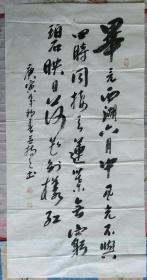 畢竟西湖六月中風光不與
四時同接天蓮葉無窮
碧映日荷花別樣紅
庚寅年
書